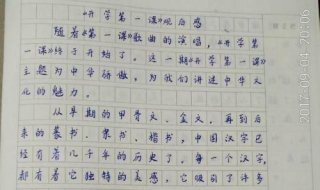 《开学第一课》观后感
随着《第一课》歌曲的演唱，《开学第
一课》终于开始了。这一期《开学第一课》
主题为中华骄傲，为我们讲述中华文
化的魅力。
从早期的甲骨文、金文，再到后
来的篆书、隶书、楷书，中国汉字已
经有着几千年的历史了，每一个汉字，
都有着它独特的美感。它吸引了许多